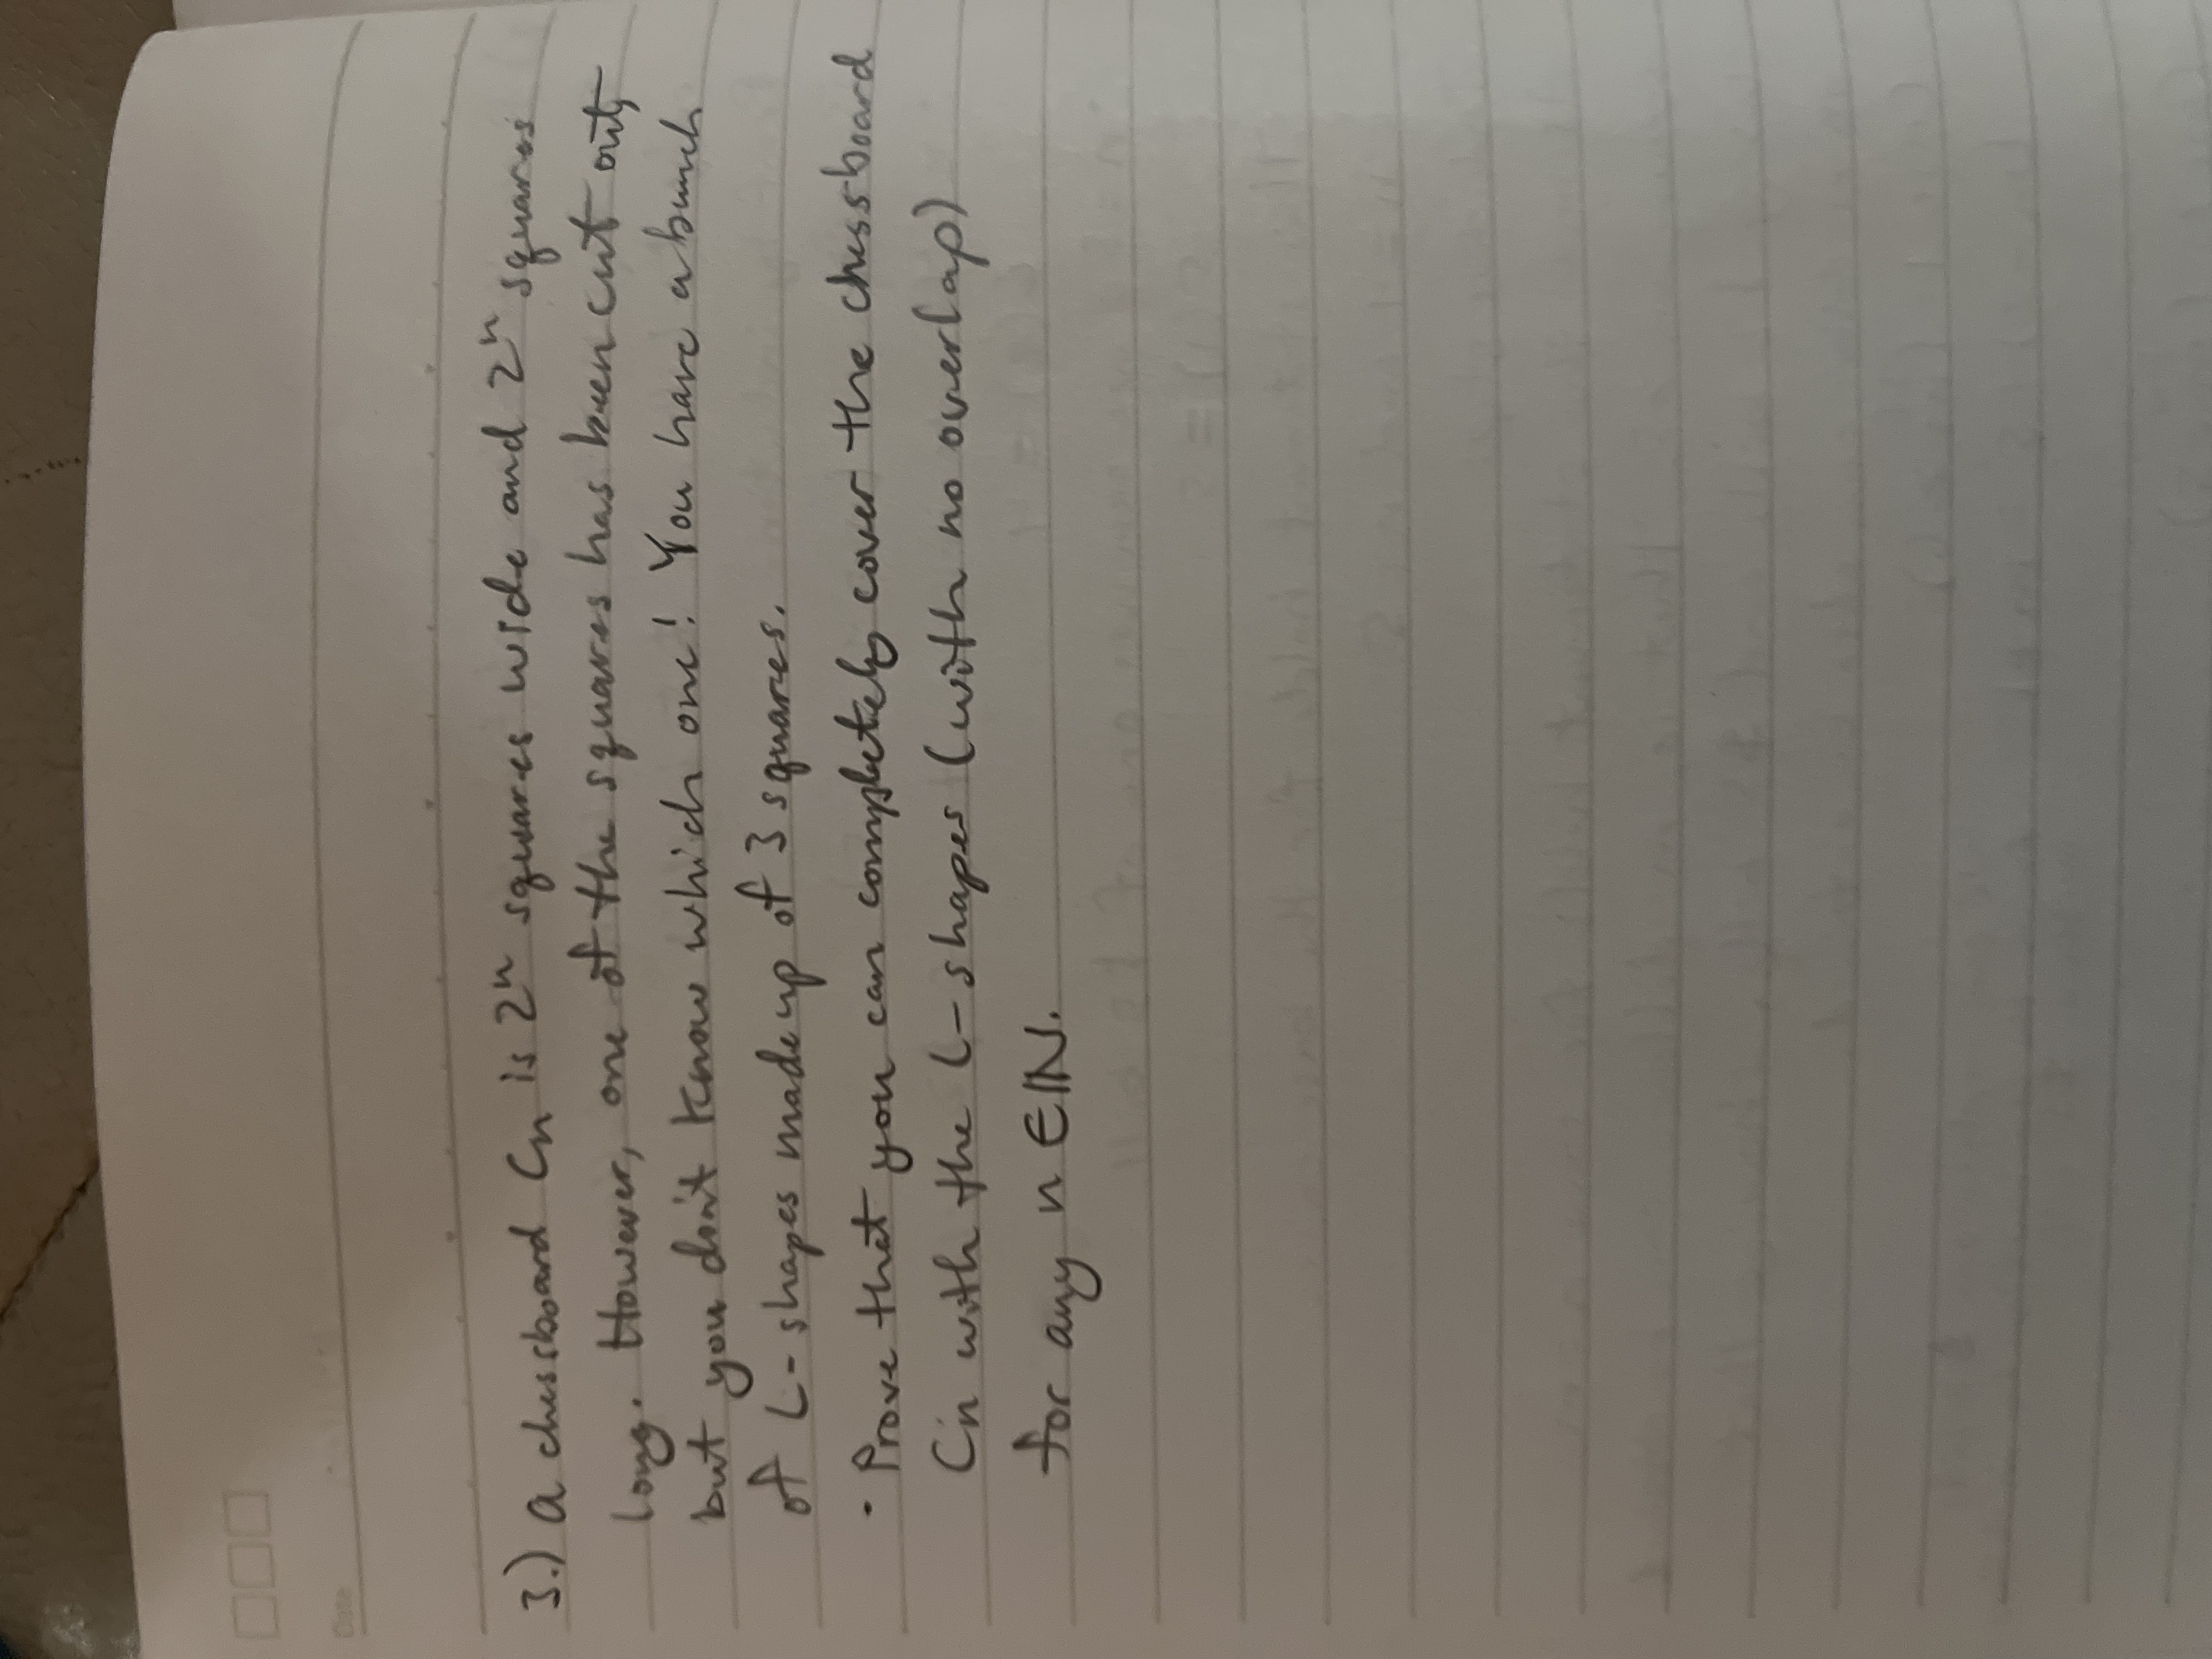 Date
3.) A chessboard Cn is 2ⁿ squares wide and 2ⁿ squares
long. However, one of the squares has been cut out,
but you don't know which one! You have a bunch
of L-shapes made up of 3 squares.
• Prove that you can completely cover the chessboard
Cn with the L-shapes (with no overlap)
for any n ∈ ℕ.